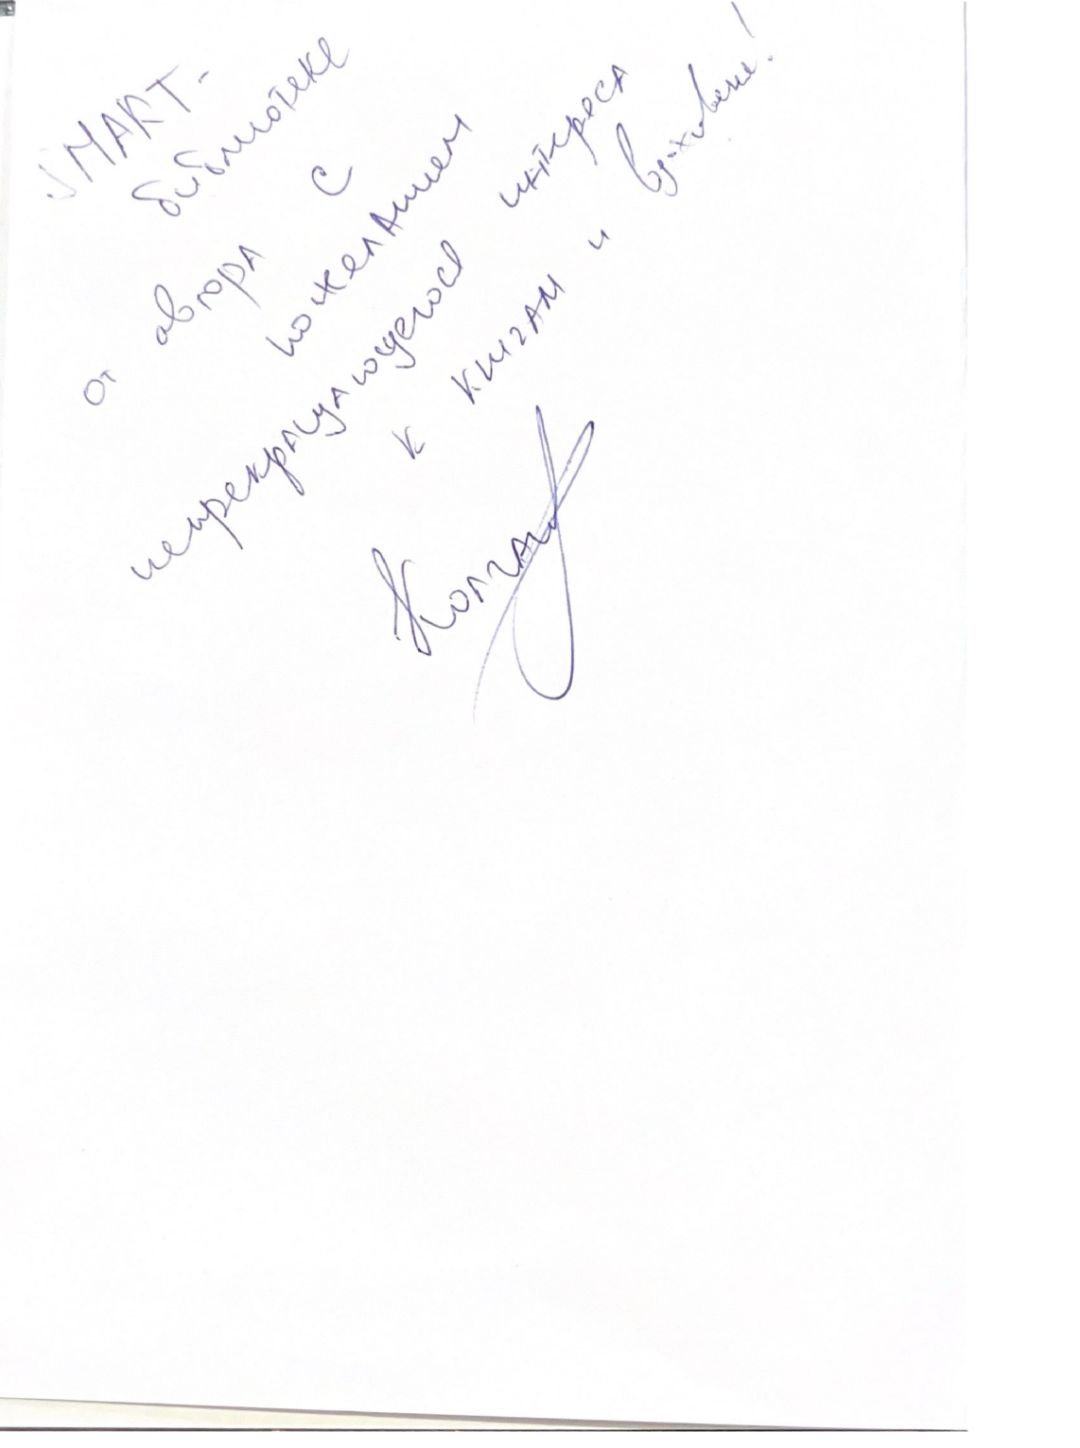 SMART-
библиотеке
от автора с
пожеланием
непрекращающегося интереса
к книгам и вдохновения!